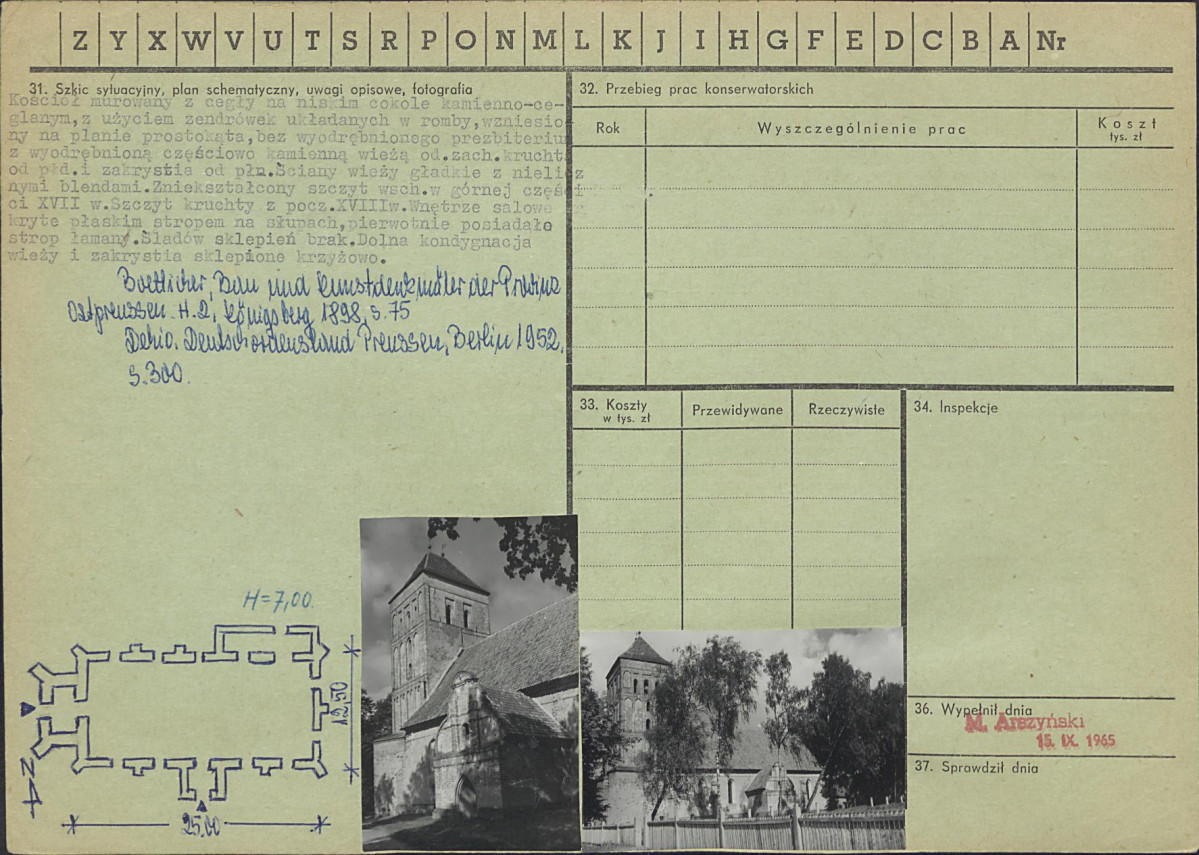 Z Y X W V U T S R P O N M L K J I H G F E D C B A Nr
31. Szkic sytuacyjny, plan schematyczny, uwagi opisowe, fotografia
Kościół murowany z cegły na niskim cokole kamienno-ce-
glanym,z użyciem zendrówek układanych w romby,wzniesio-
ny na planie prostokąta,bez wyodrębnionego prezbiterium
z wyodrębnioną częściowo kamienną wieżą od.zach.krucht
od płd.i zakrystia od płn.Ściany wieży gładkie z nielicz
nymi blendami.Zniekształcony szczyt wsch.w górnej częś
ci XVII w.Szczyt kruchty z pocz.XVIIIw.Wnętrze salowe
kryte płaskim stropem na słupach,pierwotnie posiadało
strop łamany.Śladów sklepień brak.Dolna kondygnacja
wieży i zakrystia sklepione krzyżowo.
Boetticher, Bau und Kunstdenkmäler der Provinz
Ostpreussen. H.2, Königsberg 1898, s. 75
Dehio. Deutschordensland Preussen, Berlin 1952,
s. 300.
H=7,00.
12,50
N
25.00
32. Przebieg prac konserwatorskich
Rok
Wyszczególnienie prac
Koszt
tys. zł
33. Koszty
w tys. zł
Przewidywane
Rzeczywiste
34. Inspekcje
36. Wypełnił dnia
M. Arszyński
15. IX. 1965
37. Sprawdził dnia